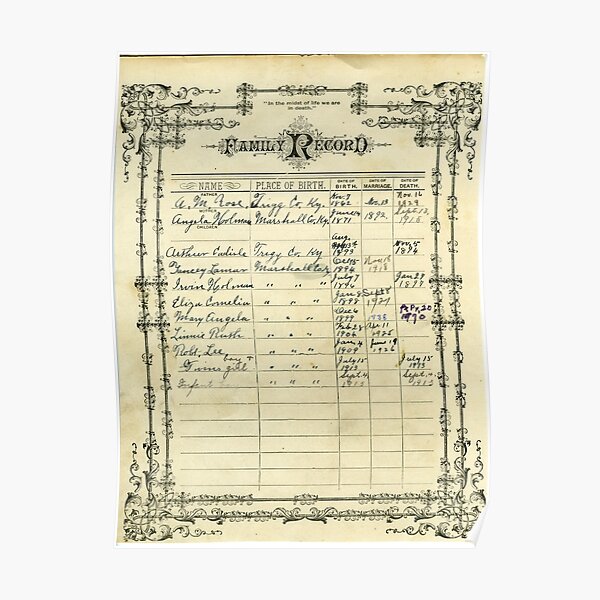 "In the midst of life we are
in death."
FAMILY RECORD
NAME PLACE OF BIRTH. DATE OF BIRTH. DATE OF MARRIAGE. DATE OF DEATH.
FATHER
A. M. Rose, Trigg Co, Ky. Nov. 9 1862 Nov. 13 Nov. 16 1929
MOTHER
Angela Holman Marshall Co, Ky. June 14 1871 1892. Sept. 13, 1915
CHILDREN
Arthur Carlisle Trigg Co, Ky Aug. 1893 Nov. 5 1894
Yancey Lamar Marshall Co, Ky Oct 15 1894 Nov 18 1918
Irvin Holman " " " July 7 1896 Jan 29 1897
Eliza Cornelia " " " Jan. 8 1898 Sept 8 1927
Mary Angela " " " Dec 6 1899 1938 Apr. 20 1970
Linnie Rush " " " Feb 28 1904 Apr 11 1925
Robt. Lee " " " Jan. 4 1909 June 19 1926
Twins boy + girl " " " July 15 1913 July 15 1913
Infant " " " Sept. 4 1915 Sept. 1915